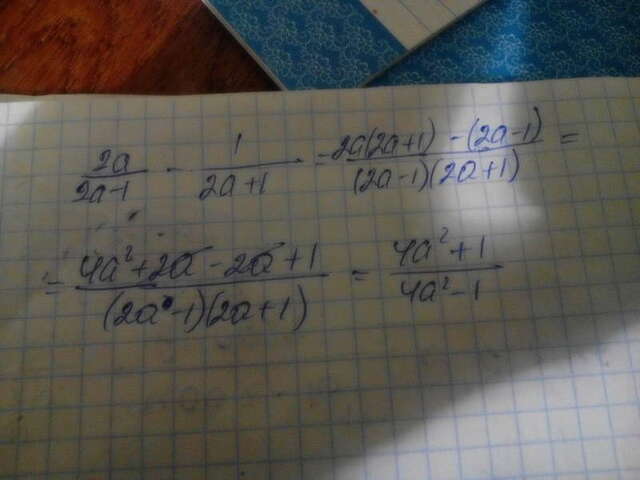 2a/(2a-1) - 1/(2a+1) = (2a(2a+1) - (2a-1))/((2a-1)(2a+1)) =
= (4a²+2a-2a+1)/((2a-1)(2a+1)) = (4a²+1)/(4a²-1)